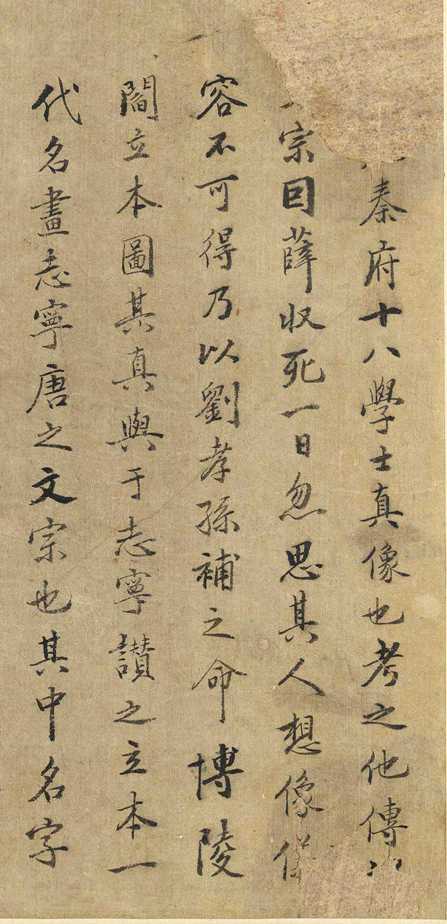 秦府十八學士真像也考之他傳
宗因薛收死一日忽思其人想像儀
容不可得乃以劉孝孫補之命博陵
閻立本圖其真與于志寧讃之立本一
代名畫志寧唐之文宗也其中名字